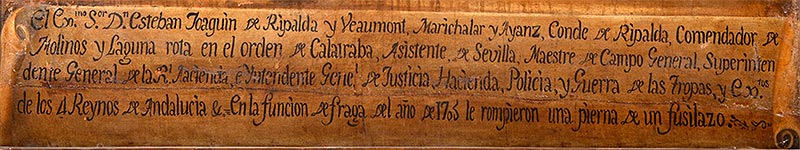 El Ex.mo S.or D.n Esteban Joaquin de Ripalda y Veaumont, Marichalar y Ayanz, Conde de Ripalda, Comendador de
Molinos y Laguna rota en el orden de Calatraba, Asistente, de Sevilla, Maestre de Campo General, Superinten
dente General de la R.l Hacienda, e Yntendente Gene.l de Justicia, Hacienda, Policia, y Guerra de las Tropas, y Ex.tos
de los 4 Reynos de Andalucia &. En la funcion de fraga del año de 1705 le rompieron una pierna de un fusilazo.